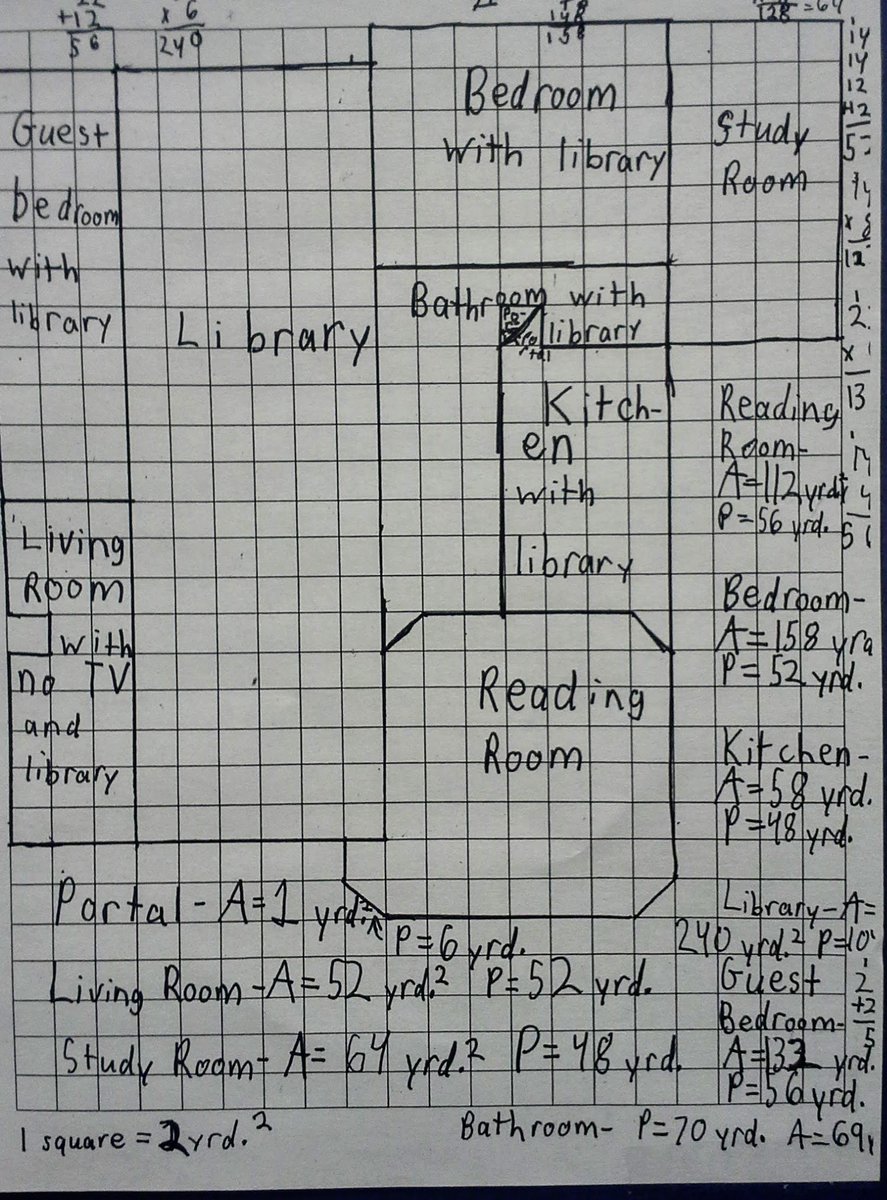 +12
56
x 6
240
148
158
128 =64
Guest
bedroom
with
library
Library
Bedroom
with library
Study
Room
14
14
12
+12
Bathroom with
library
Kitch-
en
with
library
Living
Room
with
no TV
and
library
Reading
Room
Reading
Room-
A=112 yrd²
P=56 yrd.
Bedroom-
A=158 yrd
P=52 yrd.
Kitchen-
A=58 yrd.
P=48 yrd.
Library-A=
240 yrd.² P=10
Guest
Bedroom-
A=132 yrd.
P=56 yrd.
Portal-A=1 yrd.²
P=6 yrd.
Living Room-A=52 yrd.² P=52 yrd.
Study Room- A= 64 yrd.² P=48 yrd.
1 square = 2 yrd.²
Bathroom- P=70 yrd. A=69